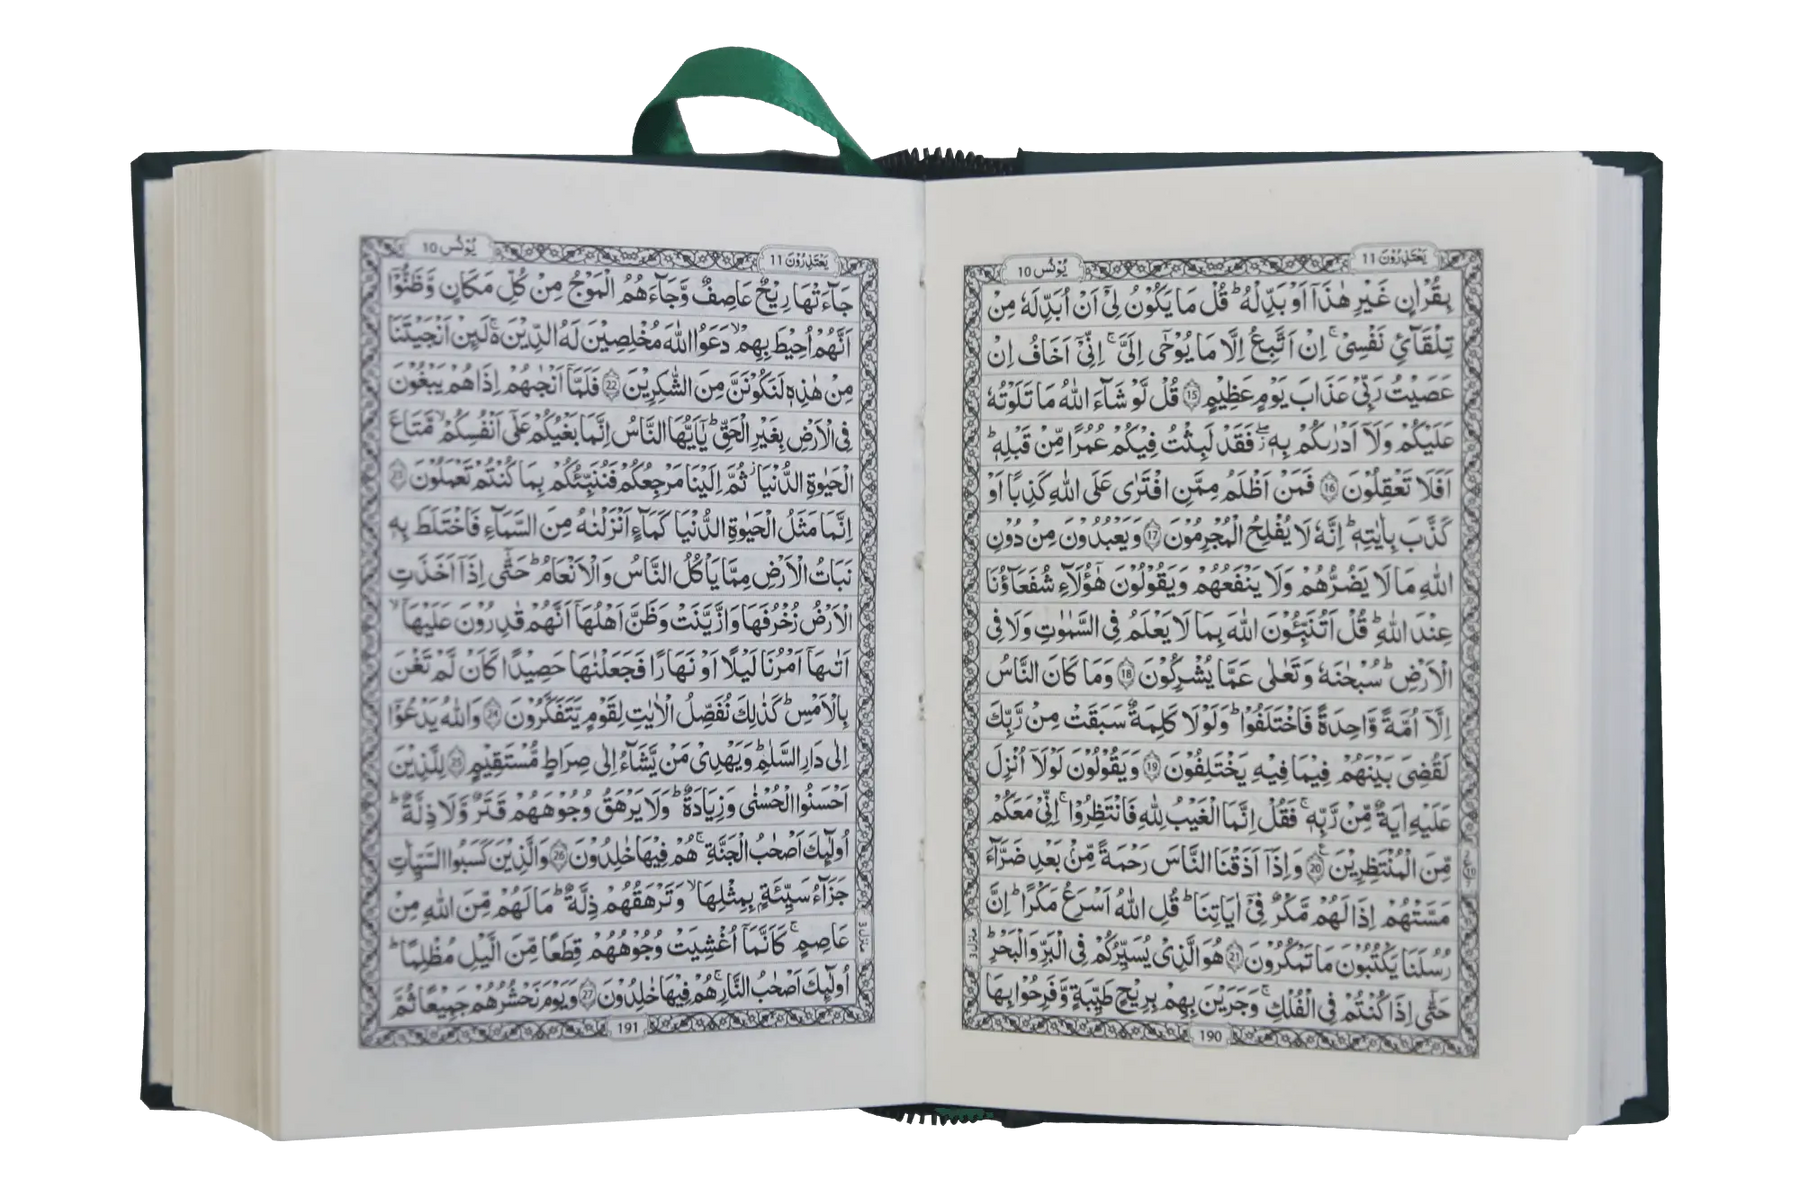 يَعْتَذِرُوْنَ 11
يُوْنُس 10
بِقُرْاٰنٍ غَيْرِ هٰذَاۤ اَوْ بَدِّلْهُ ؕ قُلْ مَا يَكُوْنُ لِيْۤ اَنْ اُبَدِّلَهٗ مِنْ
تِلْقَآئِ نَفْسِيْ ۚ اِنْ اَتَّبِعُ اِلَّا مَا يُوْحٰۤى اِلَيَّ ۚ اِنِّيْۤ اَخَافُ اِنْ
عَصَيْتُ رَبِّيْ عَذَابَ يَوْمٍ عَظِيْمٍ 15 قُلْ لَّوْ شَآءَ اللّٰهُ مَا تَلَوْتُهٗ
عَلَيْكُمْ وَلَاۤ اَدْرٰىكُمْ بِهٖ ۖز فَقَدْ لَبِثْتُ فِيْكُمْ عُمُرًا مِّنْ قَبْلِهٖ ؕ
اَفَلَا تَعْقِلُوْنَ 16 فَمَنْ اَظْلَمُ مِمَّنِ افْتَرٰى عَلَى اللّٰهِ كَذِبًا اَوْ
كَذَّبَ بِاٰيٰتِهٖ ؕ اِنَّهٗ لَا يُفْلِحُ الْمُجْرِمُوْنَ 17 وَيَعْبُدُوْنَ مِنْ دُوْنِ
اللّٰهِ مَا لَا يَضُرُّهُمْ وَلَا يَنْفَعُهُمْ وَيَقُوْلُوْنَ هٰۤؤُلَآءِ شُفَعَآؤُنَا
عِنْدَ اللّٰهِ ؕ قُلْ اَتُنَبِّئُوْنَ اللّٰهَ بِمَا لَا يَعْلَمُ فِي السَّمٰوٰتِ وَلَا فِي
الْاَرْضِ ؕ سُبْحٰنَهٗ وَتَعٰلٰى عَمَّا يُشْرِكُوْنَ 18 وَمَا كَانَ النَّاسُ
اِلَّاۤ اُمَّةً وَّاحِدَةً فَاخْتَلَفُوْا ؕ وَلَوْلَا كَلِمَةٌ سَبَقَتْ مِنْ رَّبِّكَ
لَقُضِيَ بَيْنَهُمْ فِيْمَا فِيْهِ يَخْتَلِفُوْنَ 19 وَيَقُوْلُوْنَ لَوْلَاۤ اُنْزِلَ
عَلَيْهِ اٰيَةٌ مِّنْ رَّبِّهٖ ۚ فَقُلْ اِنَّمَا الْغَيْبُ لِلّٰهِ فَانْتَظِرُوْا ۚ اِنِّيْ مَعَكُمْ
مِّنَ الْمُنْتَظِرِيْنَ 20 وَاِذَاۤ اَذَقْنَا النَّاسَ رَحْمَةً مِّنْۢ بَعْدِ ضَرَّآءَ
مَسَّتْهُمْ اِذَا لَهُمْ مَّكْرٌ فِيْۤ اٰيَاتِنَا ؕ قُلِ اللّٰهُ اَسْرَعُ مَكْرًا ؕ اِنَّ
رُسُلَنَا يَكْتُبُوْنَ مَا تَمْكُرُوْنَ 21 هُوَ الَّذِيْ يُسَيِّرُكُمْ فِي الْبَرِّ وَالْبَحْرِ ؕ
حَتّٰۤى اِذَا كُنْتُمْ فِي الْفُلْكِ ۚ وَجَرَيْنَ بِهِمْ بِرِيْحٍ طَيِّبَةٍ وَّفَرِحُوْا بِهَا
منزل 3
190
يَعْتَذِرُوْنَ 11
يُوْنُس 10
جَآءَتْهَا رِيْحٌ عَاصِفٌ وَّجَآءَهُمُ الْمَوْجُ مِنْ كُلِّ مَكَانٍ وَّظَنُّوْۤا
اَنَّهُمْ اُحِيْطَ بِهِمْ ۙ دَعَوُا اللّٰهَ مُخْلِصِيْنَ لَهُ الدِّيْنَ ۚ۬ لَئِنْ اَنْجَيْتَنَا
مِنْ هٰذِهٖ لَنَكُوْنَنَّ مِنَ الشّٰكِرِيْنَ 22 فَلَمَّاۤ اَنْجٰىهُمْ اِذَا هُمْ يَبْغُوْنَ
فِي الْاَرْضِ بِغَيْرِ الْحَقِّ ؕ يٰۤاَيُّهَا النَّاسُ اِنَّمَا بَغْيُكُمْ عَلٰۤى اَنْفُسِكُمْ ۙ مَّتَاعَ
الْحَيٰوةِ الدُّنْيَا ؗ ثُمَّ اِلَيْنَا مَرْجِعُكُمْ فَنُنَبِّئُكُمْ بِمَا كُنْتُمْ تَعْمَلُوْنَ 23
اِنَّمَا مَثَلُ الْحَيٰوةِ الدُّنْيَا كَمَآءٍ اَنْزَلْنٰهُ مِنَ السَّمَآءِ فَاخْتَلَطَ بِهٖ
نَبَاتُ الْاَرْضِ مِمَّا يَاْكُلُ النَّاسُ وَالْاَنْعَامُ ؕ حَتّٰۤى اِذَاۤ اَخَذَتِ
الْاَرْضُ زُخْرُفَهَا وَازَّيَّنَتْ وَظَنَّ اَهْلُهَاۤ اَنَّهُمْ قٰدِرُوْنَ عَلَيْهَاۤ ۙ
اَتٰىهَاۤ اَمْرُنَا لَيْلًا اَوْ نَهَارًا فَجَعَلْنٰهَا حَصِيْدًا كَاَنْ لَّمْ تَغْنَ
بِالْاَمْسِ ؕ كَذٰلِكَ نُفَصِّلُ الْاٰيٰتِ لِقَوْمٍ يَّتَفَكَّرُوْنَ 24 وَاللّٰهُ يَدْعُوْۤا
اِلٰى دَارِ السَّلٰمِ ؕ وَيَهْدِيْ مَنْ يَّشَآءُ اِلٰى صِرَاطٍ مُّسْتَقِيْمٍ 25 لِلَّذِيْنَ
اَحْسَنُوا الْحُسْنٰى وَزِيَادَةٌ ؕ وَلَا يَرْهَقُ وُجُوْهَهُمْ قَتَرٌ وَّلَا ذِلَّةٌ ؕ
اُولٰٓئِكَ اَصْحٰبُ الْجَنَّةِ ۚ هُمْ فِيْهَا خٰلِدُوْنَ 26 وَالَّذِيْنَ كَسَبُوا السَّيِّاٰتِ
جَزَآءُ سَيِّئَةٍۭ بِمِثْلِهَا ۙ وَتَرْهَقُهُمْ ذِلَّةٌ ؕ مَا لَهُمْ مِّنَ اللّٰهِ مِنْ
عَاصِمٍ ۚ كَاَنَّمَاۤ اُغْشِيَتْ وُجُوْهُهُمْ قِطَعًا مِّنَ الَّيْلِ مُظْلِمًا ؕ
اُولٰٓئِكَ اَصْحٰبُ النَّارِ ۚ هُمْ فِيْهَا خٰلِدُوْنَ 27 وَيَوْمَ نَحْشُرُهُمْ جَمِيْعًا ثُمَّ
منزل 3
191